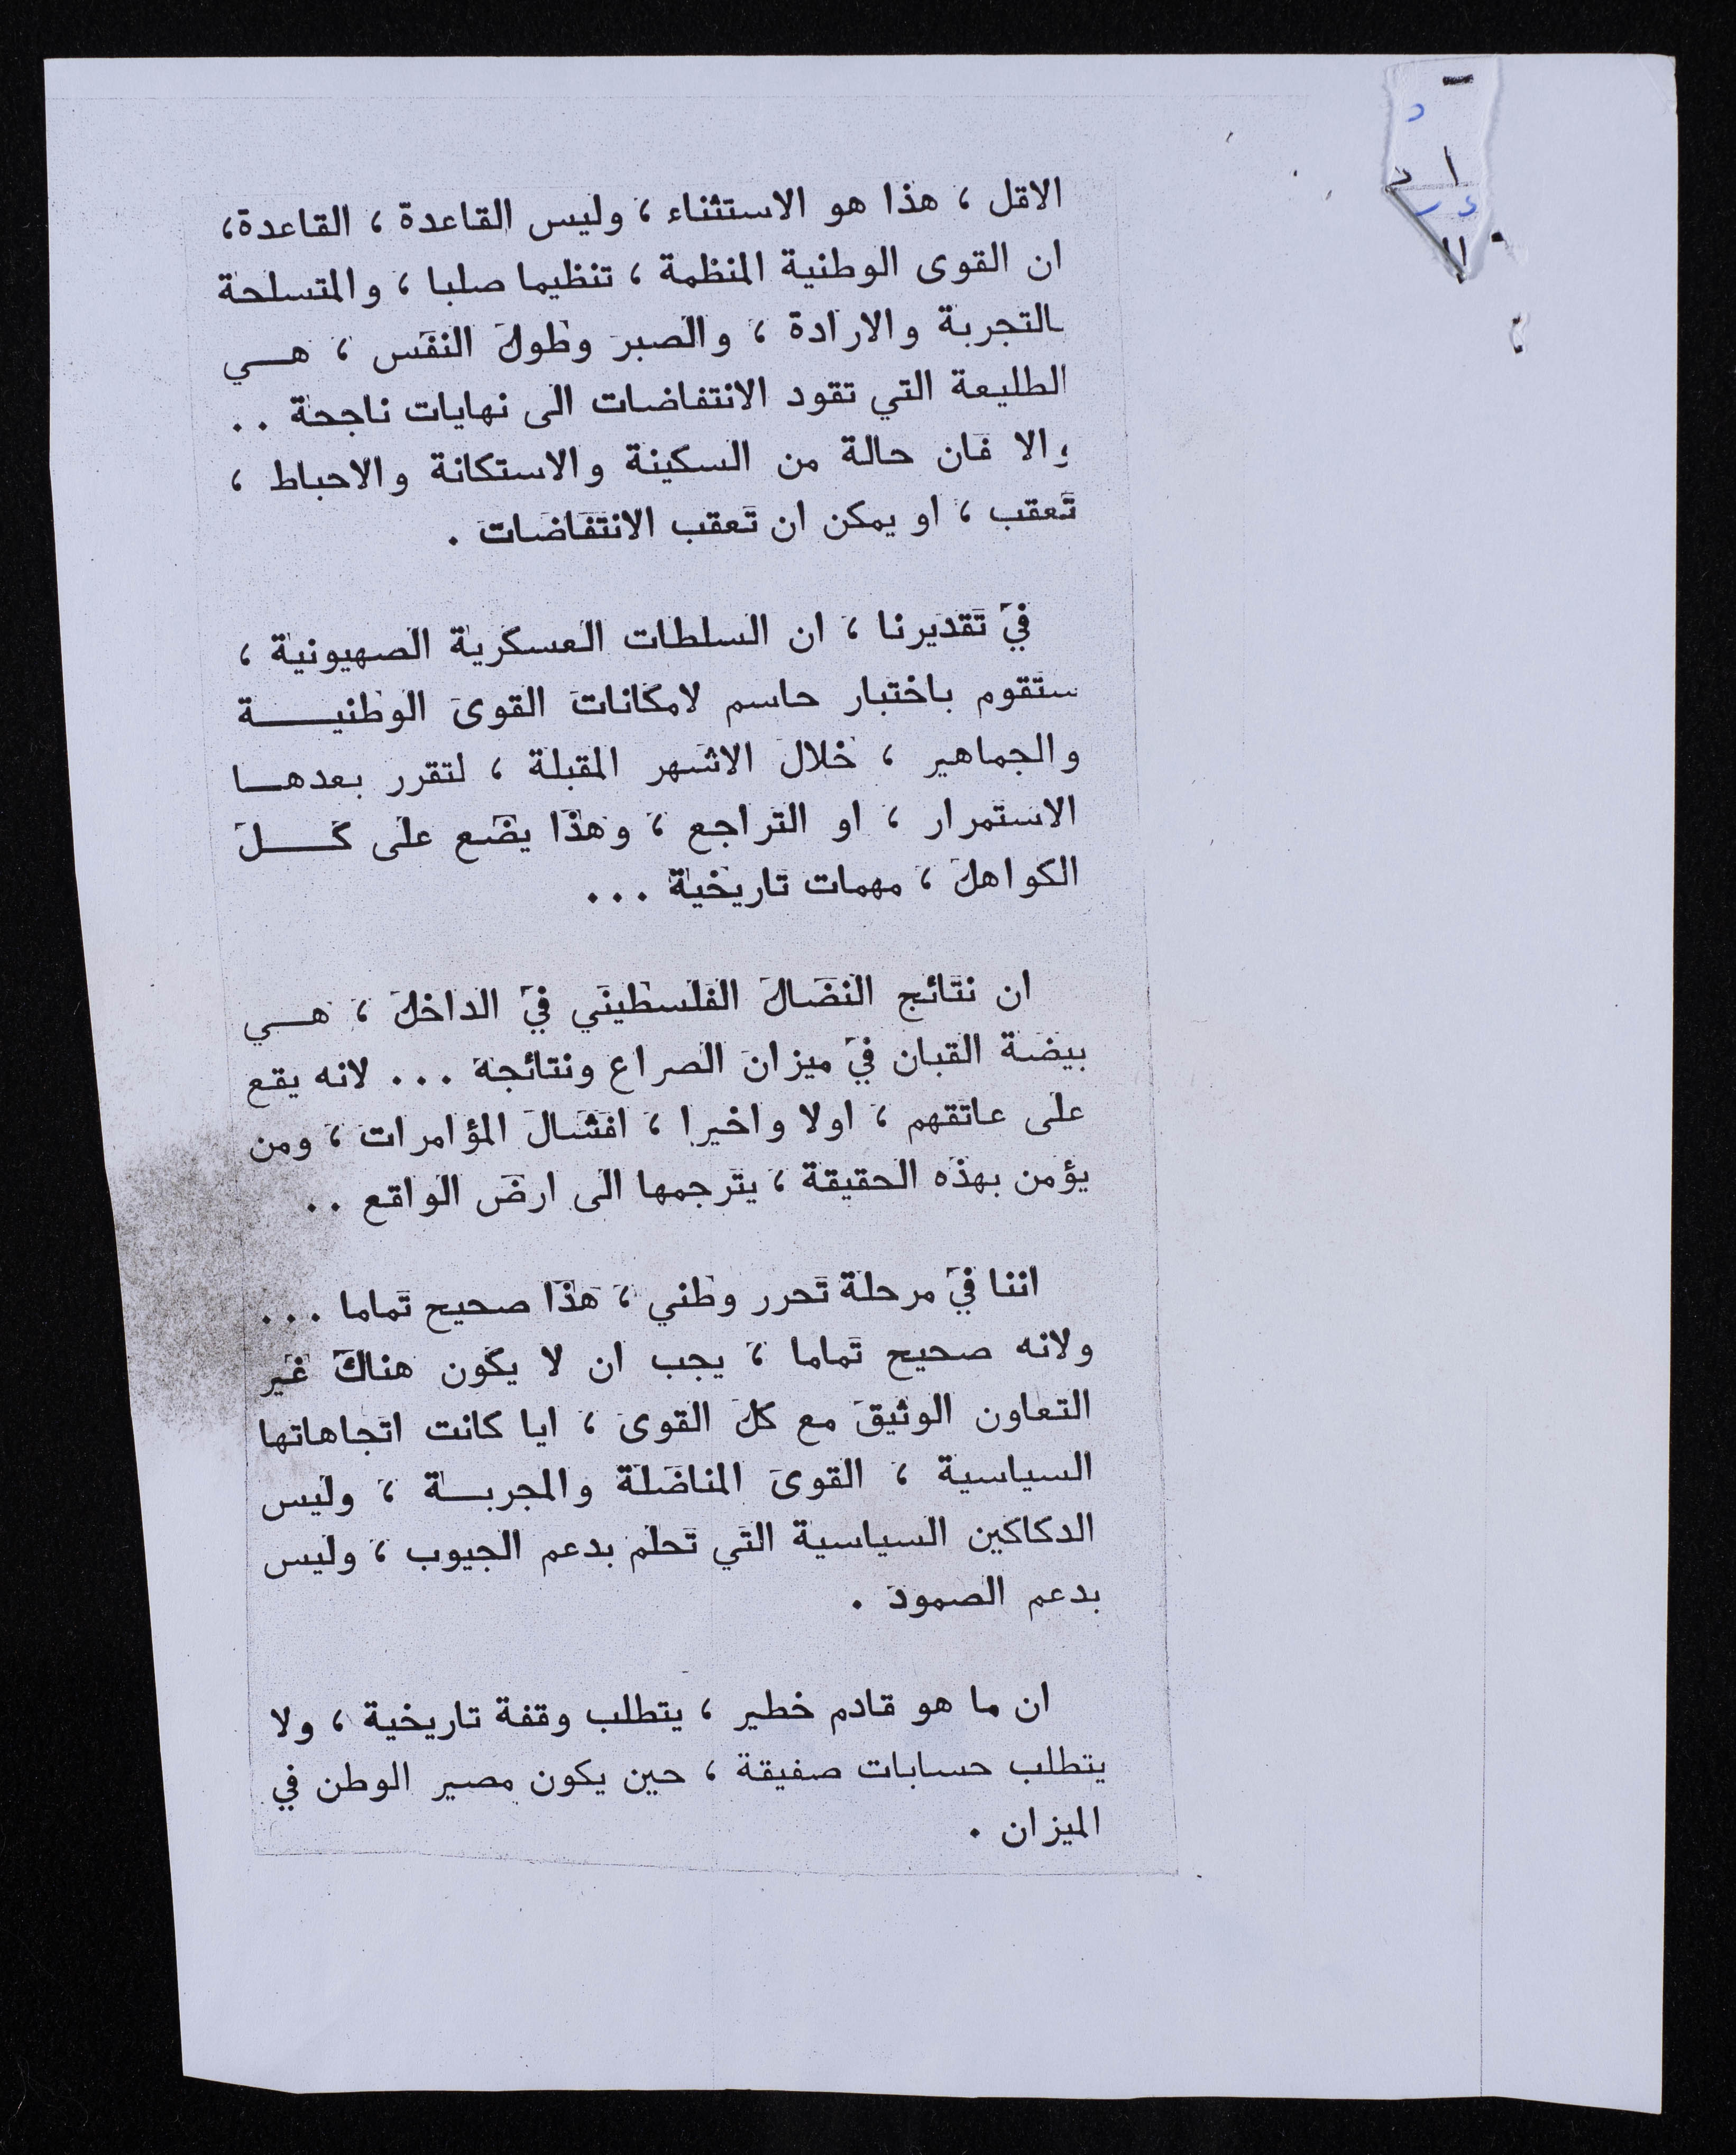 الاقل ، هذا هو الاستثناء ، وليس القاعدة ، القاعدة،
ان القوى الوطنية المنظمة ، تنظيما صلبا ، والمتسلحة
بالتجربة والارادة ، والصبر وطول النفس ، هـــي
الطليعة التي تقود الانتفاضات الى نهايات ناجحة ..
والا فان حالة من السكينة والاستكانة والاحباط ،
تعقب ، او يمكن ان تعقب الانتفاضات .
في تقديرنا ، ان السلطات العسكرية الصهيونية ،
ستقوم باختبار حاسم لامكانات القوى الوطنيـــــة
والجماهير ، خلال الاشهر المقبلة ، لتقرر بعدهــا
الاستمرار ، او التراجع ، وهذا يضع على كـــــل
الكواهل ، مهمات تاريخية ...
ان نتائج النضال الفلسطيني في الداخل ، هـــي
بيضة القبان في ميزان الصراع ونتائجه ... لانه يقع
على عاتقهم ، اولا واخيرا ، افشال المؤامرات ، ومن
يؤمن بهذه الحقيقة ، يترجمها الى ارض الواقع ..
اننا في مرحلة تحرر وطني ، هذا صحيح تماما ...
ولانه صحيح تماما ، يجب ان لا يكون هناك غير
التعاون الوثيق مع كل القوى ، ايا كانت اتجاهاتها
السياسية ، القوى المناضلة والمجربــة ، وليس
الدكاكين السياسية التي تحلم بدعم الجيوب ، وليس
بدعم الصمود .
ان ما هو قادم خطير ، يتطلب وقفة تاريخية ، ولا
يتطلب حسابات صفيقة ، حين يكون مصير الوطن في
الميزان .